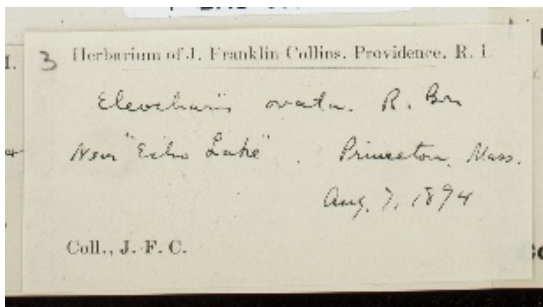 3 Herbarium of J. Franklin Collins, Providence, R. I.
Eleocharis ovata. R. Br
Near "Echo Lake". Princeton, Mass.
Aug. 7, 1894
Coll., J. F. C.